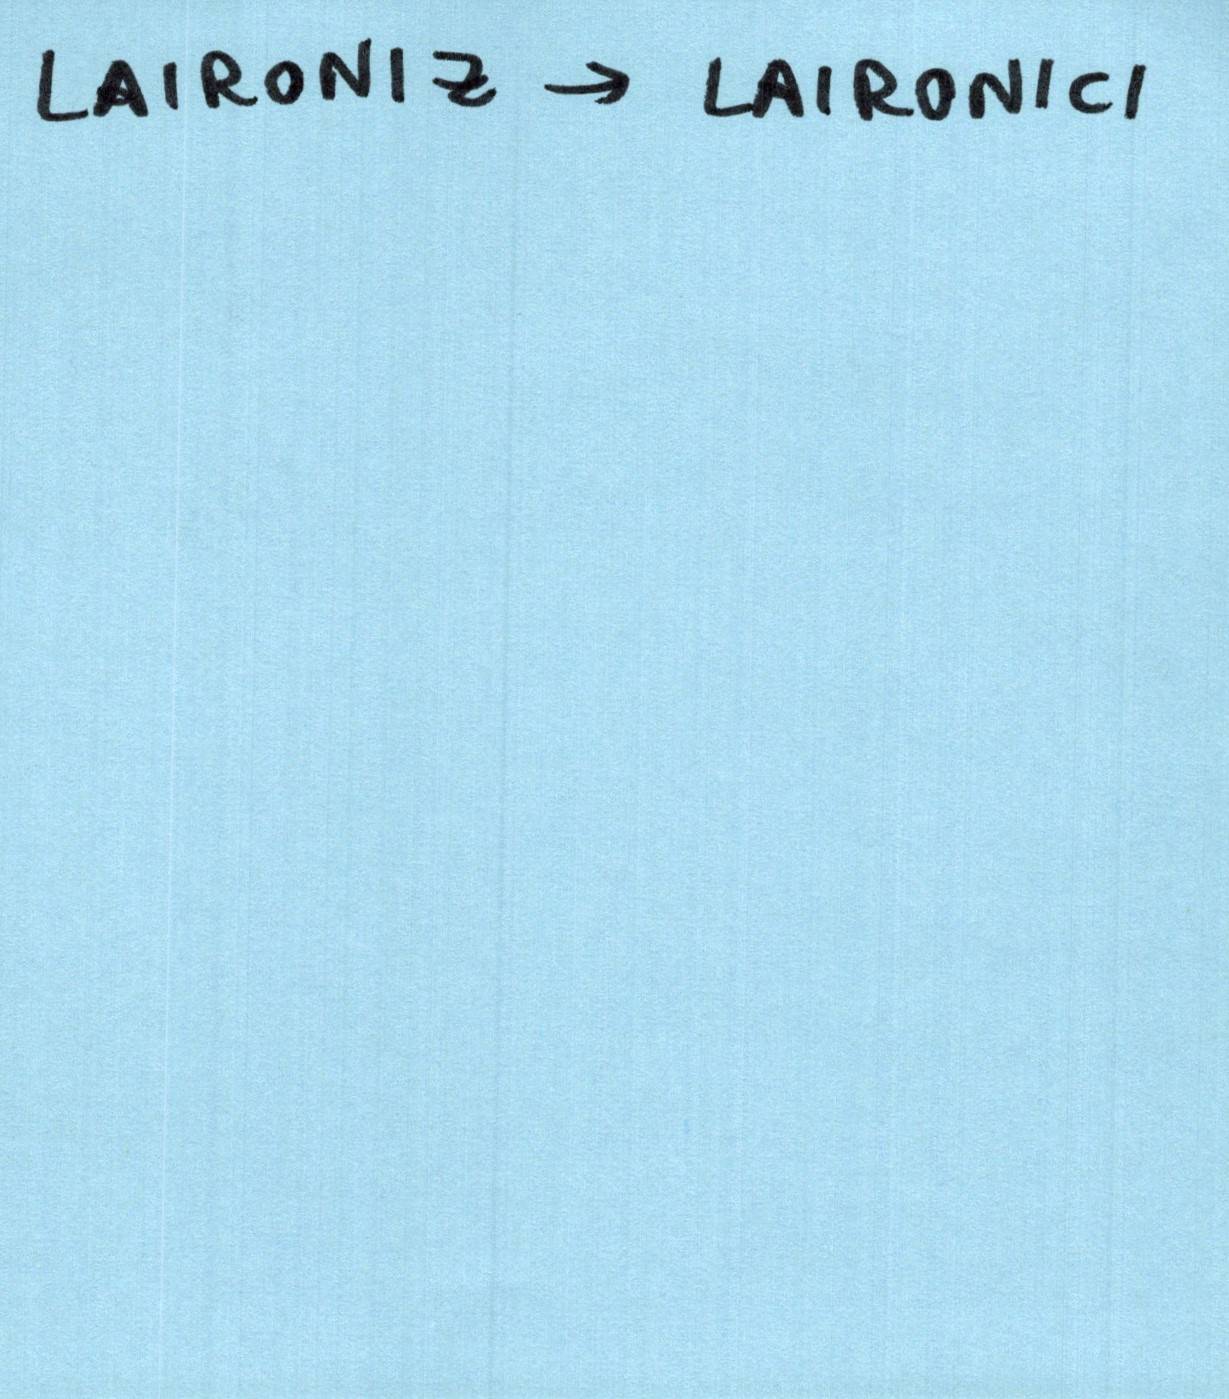 LAIRONIZ → LAIRONICI